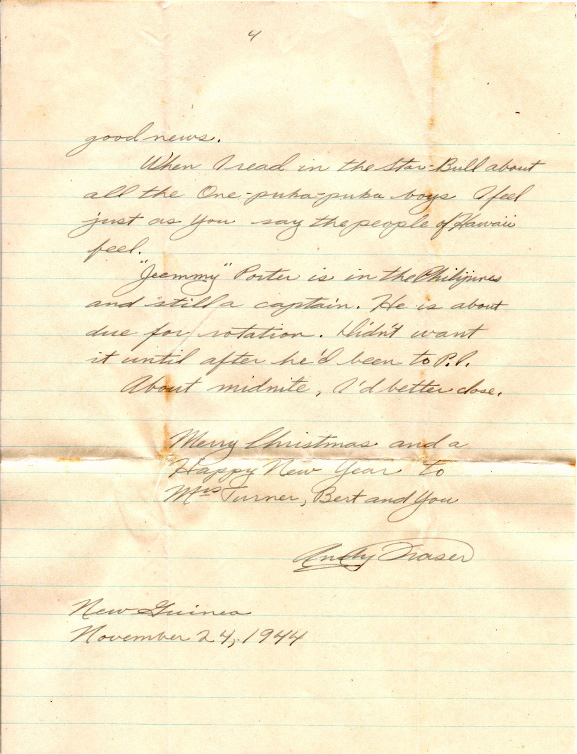 4
good news.
When I read in the Star-Bull about
all the One-puka-puka boys I feel
just as you say the people of Hawaii
feel.
"Jeemmy" Porter is in the Philippines
and still a captain. He is about
due for rotation. Didn't want
it until after he'd been to P.I.
About midnite, I'd better close.
Merry Christmas and a
Happy New Year to
Mrs Turner, Bert and You
Andy Fraser
New Guinea
November 24, 1944